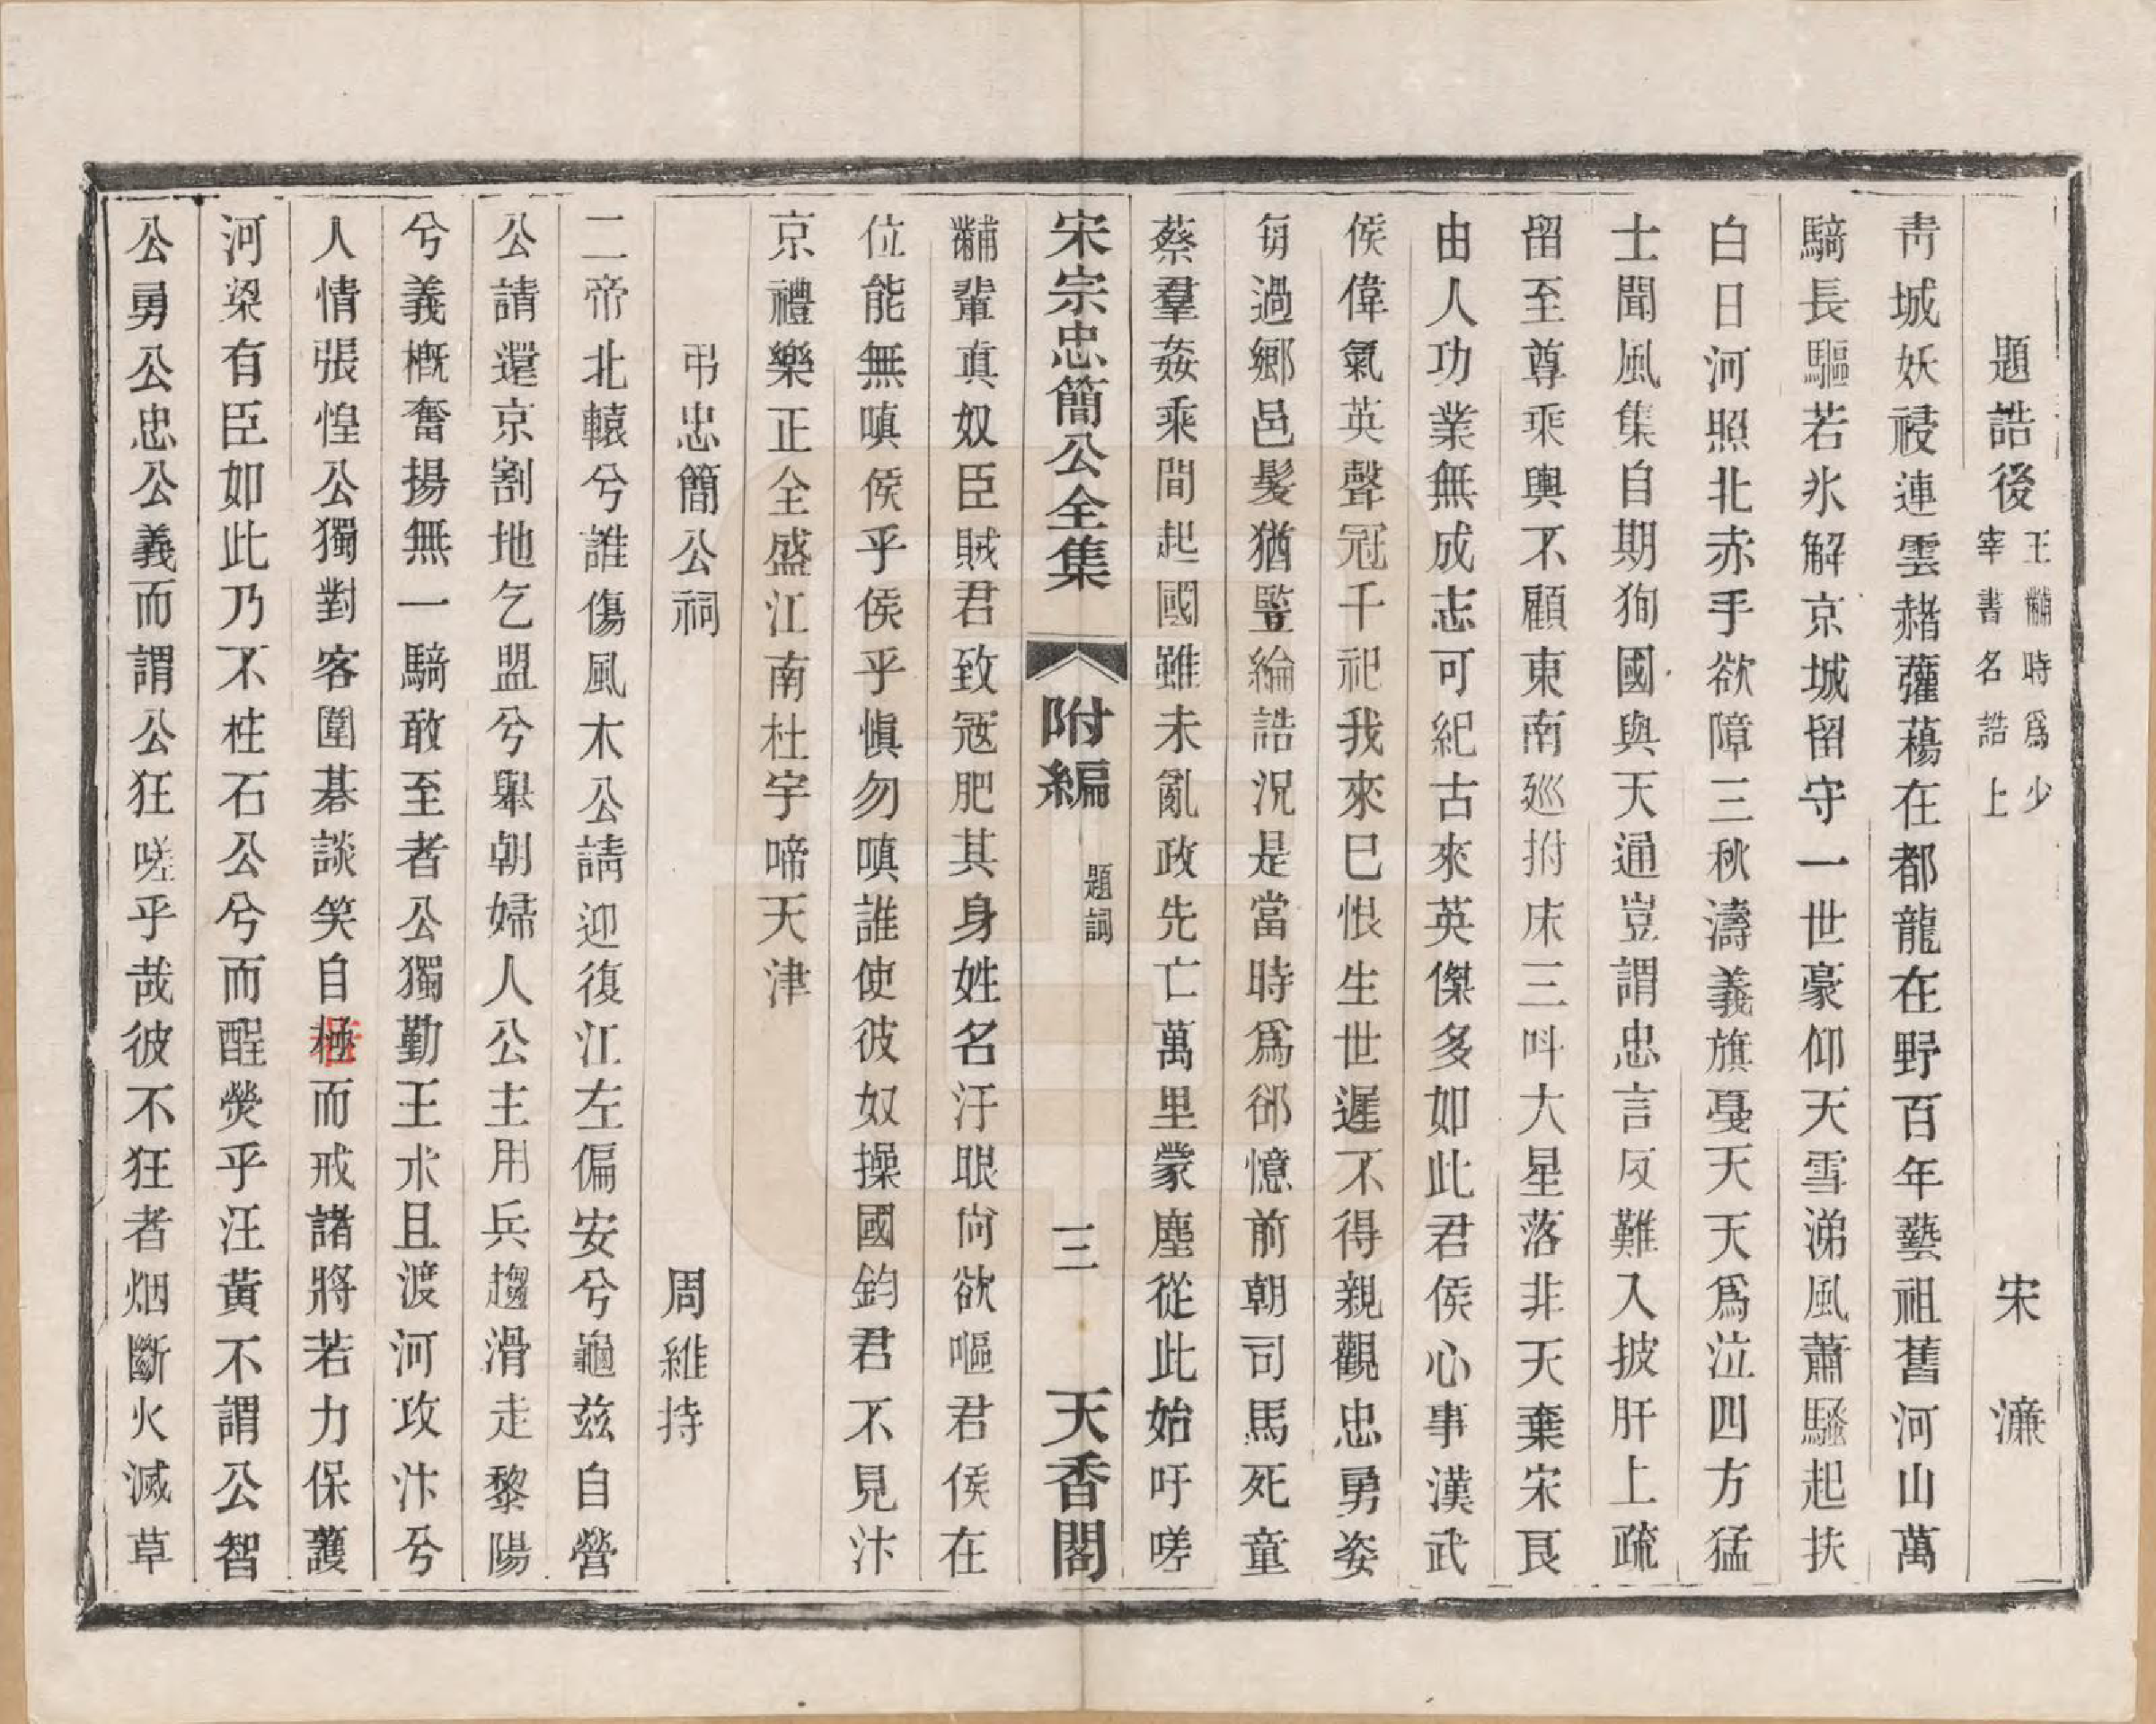 題誥後 王黼時爲少宰書名誥上 宋濂
靑城妖祲連雲赭虇蕩在都龍在野百年藝祖舊河山萬
騎長驅若氷解京城留守一世豪仰天雪涕風蕭騷起扶
白日河照北赤手欲障三秋濤義旗戞天天爲泣四方猛
士聞風集自期狥國與天通豈謂忠言反難入披肝上疏
留至尊乘輿不顧東南廵拊床三呌大星落非天棄宋良
由人功業無成志可紀古來英傑多如此君侯心事漢武
侯偉氣英聲冠千祀我來已恨生世遲不得親觀忠勇姿
每過鄉邑髮猶豎綸誥況是當時爲郤憶前朝司馬死童
蔡羣姦乘間起國雖未亂政先亡萬里蒙塵從此始吁嗟
宋宗忠簡公全集 附編 題詞 三 天香閣
黼輩真奴臣賊君致寇肥其身姓名汙眼尙欲嘔君侯在
位能無嗔侯乎侯乎愼勿嗔誰使彼奴操國鈞君不見汴
京禮樂正全盛江南杜宇啼天津
弔忠簡公祠 周維持
二帝北轅兮誰傷風木公請迎復江左偏安兮龜茲自營
公請還京割地乞盟兮舉朝婦人公主用兵趨滑走黎陽
兮義概奮揚無一騎敢至者公獨勤王朮且渡河攻汴兮
人情張惶公獨對客圍碁談笑自極而戒諸將若力保護
河梁有臣如此乃不柱石公兮而醒熒乎汪黃不謂公智
公勇公忠公義而謂公狂嗟乎哉彼不狂者烟斷火滅草